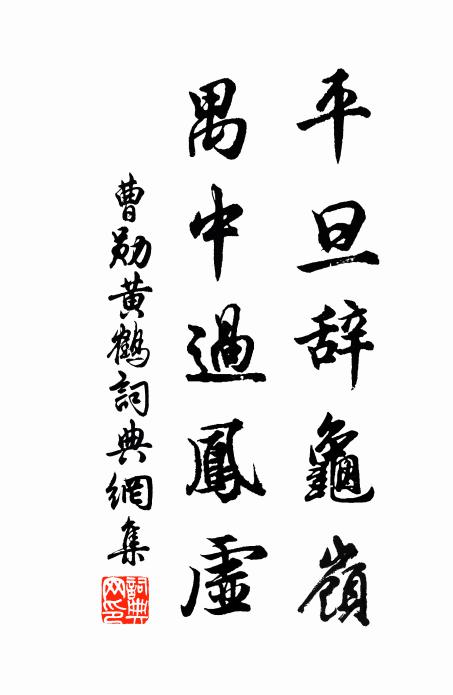 平旦辞龜嶺
禺中過鳳虚
曹勛黄鶴詞典網集
詞典网印